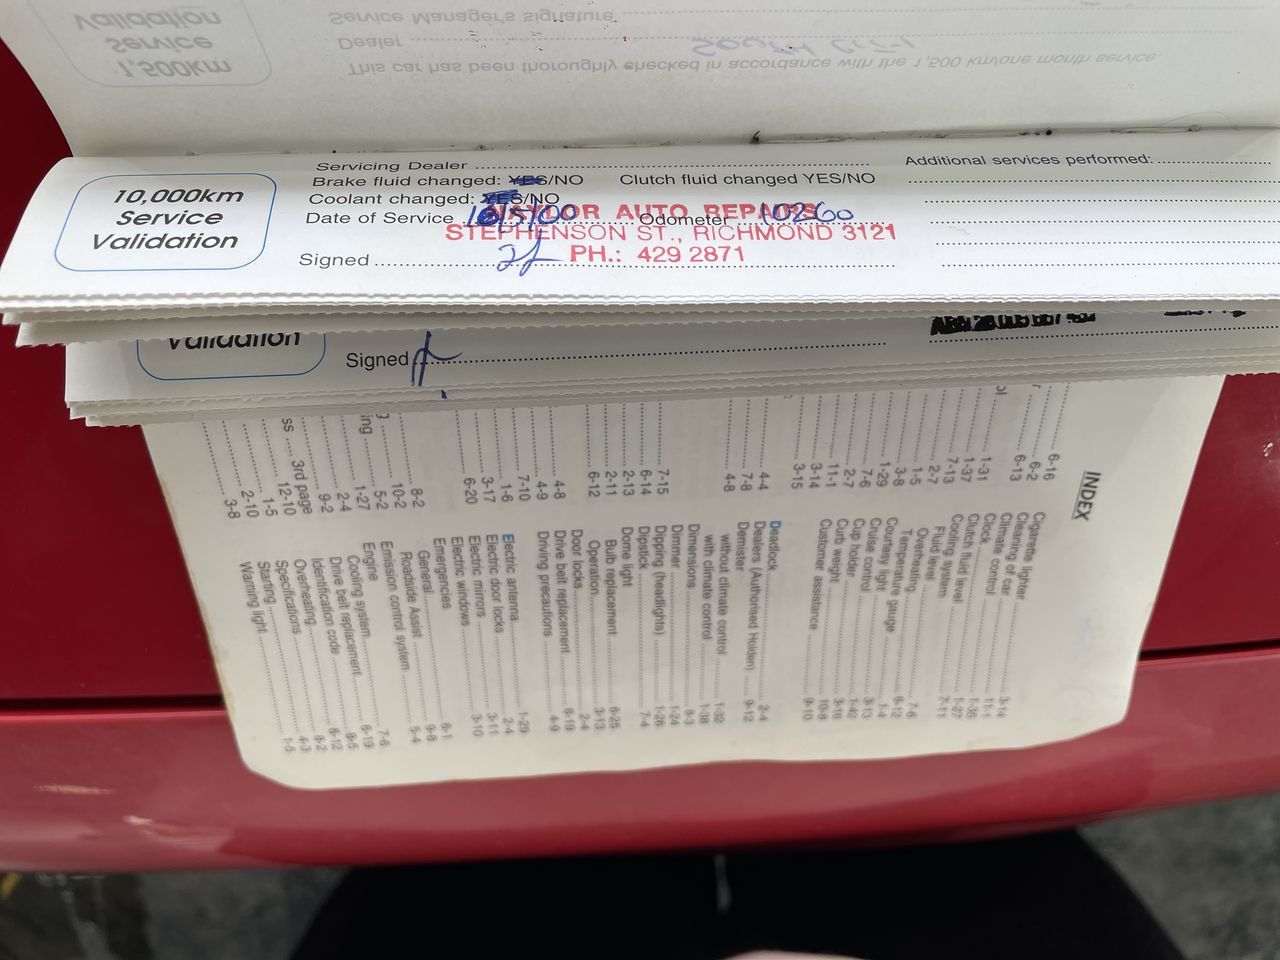 Service Manager's signature
Validation
Service
1,500km
Dealer
South City
This car has been thoroughly checked in accordance with the 1,500 km/one month service.
10,000km
Service
Validation
Servicing Dealer
Additional services performed:
Brake fluid changed: YES/NO Clutch fluid changed YES/NO
Coolant changed: YES/NO
Date of Service /5/00 Odometer 10260
NAYLOR AUTO REPAIRS
STEPHENSON ST., RICHMOND 3121
PH.: 429 2871
Signed
Validation
Signed
INDEX
Cigarette lighter 3-14
Cleaning of car 11-1
Climate control 1-35
Clock 1-27
Clutch fluid level 7-11
Cooling system
Fluid level 7-6
Overheating 6-12
Temperature gauge 1-4
Courtesy light 3-13
Cruise control 1-42
Cup holder 3-16
Curb weight 10-8
Customer assistance 9-10
Deadlock 2-4
Dealers (Authorised Holden) 9-12
Demister
without climate control 1-32
with climate control 1-38
Dimensions 8-3
Dimmer 1-24
Dipping (headlights) 1-26
Dipstick 7-4
Dome light
Bulb replacement 6-25
Operation 3-13
Door locks 2-4
Drive belt replacement 6-19
Driving precautions 4-9
Electric antenna 1-29
Electric door locks 2-4
Electric mirrors 3-11
Electric windows 3-10
Emergencies
General 6-1
Roadside Assist 9-8
Emission control system 5-4
Engine
Cooling system 7-6
Drive belt replacement 6-19
Identification code 8-5
Overheating 6-12
Specifications 8-2
Starting 4-3
Warning light 1-5
6-16
6-2
6-13
1-31
1-37
7-13
2-7
1-5
3-8
1-29
7-6
2-7
11-1
3-14
3-15
4-4
7-8
4-8
7-15
6-14
2-13
2-11
6-12
4-8
4-9
7-10
1-6
3-17
6-20
8-2
10-2
5-2
1-27
2-4
9-2
3rd page
12-10
1-5
2-10
3-8